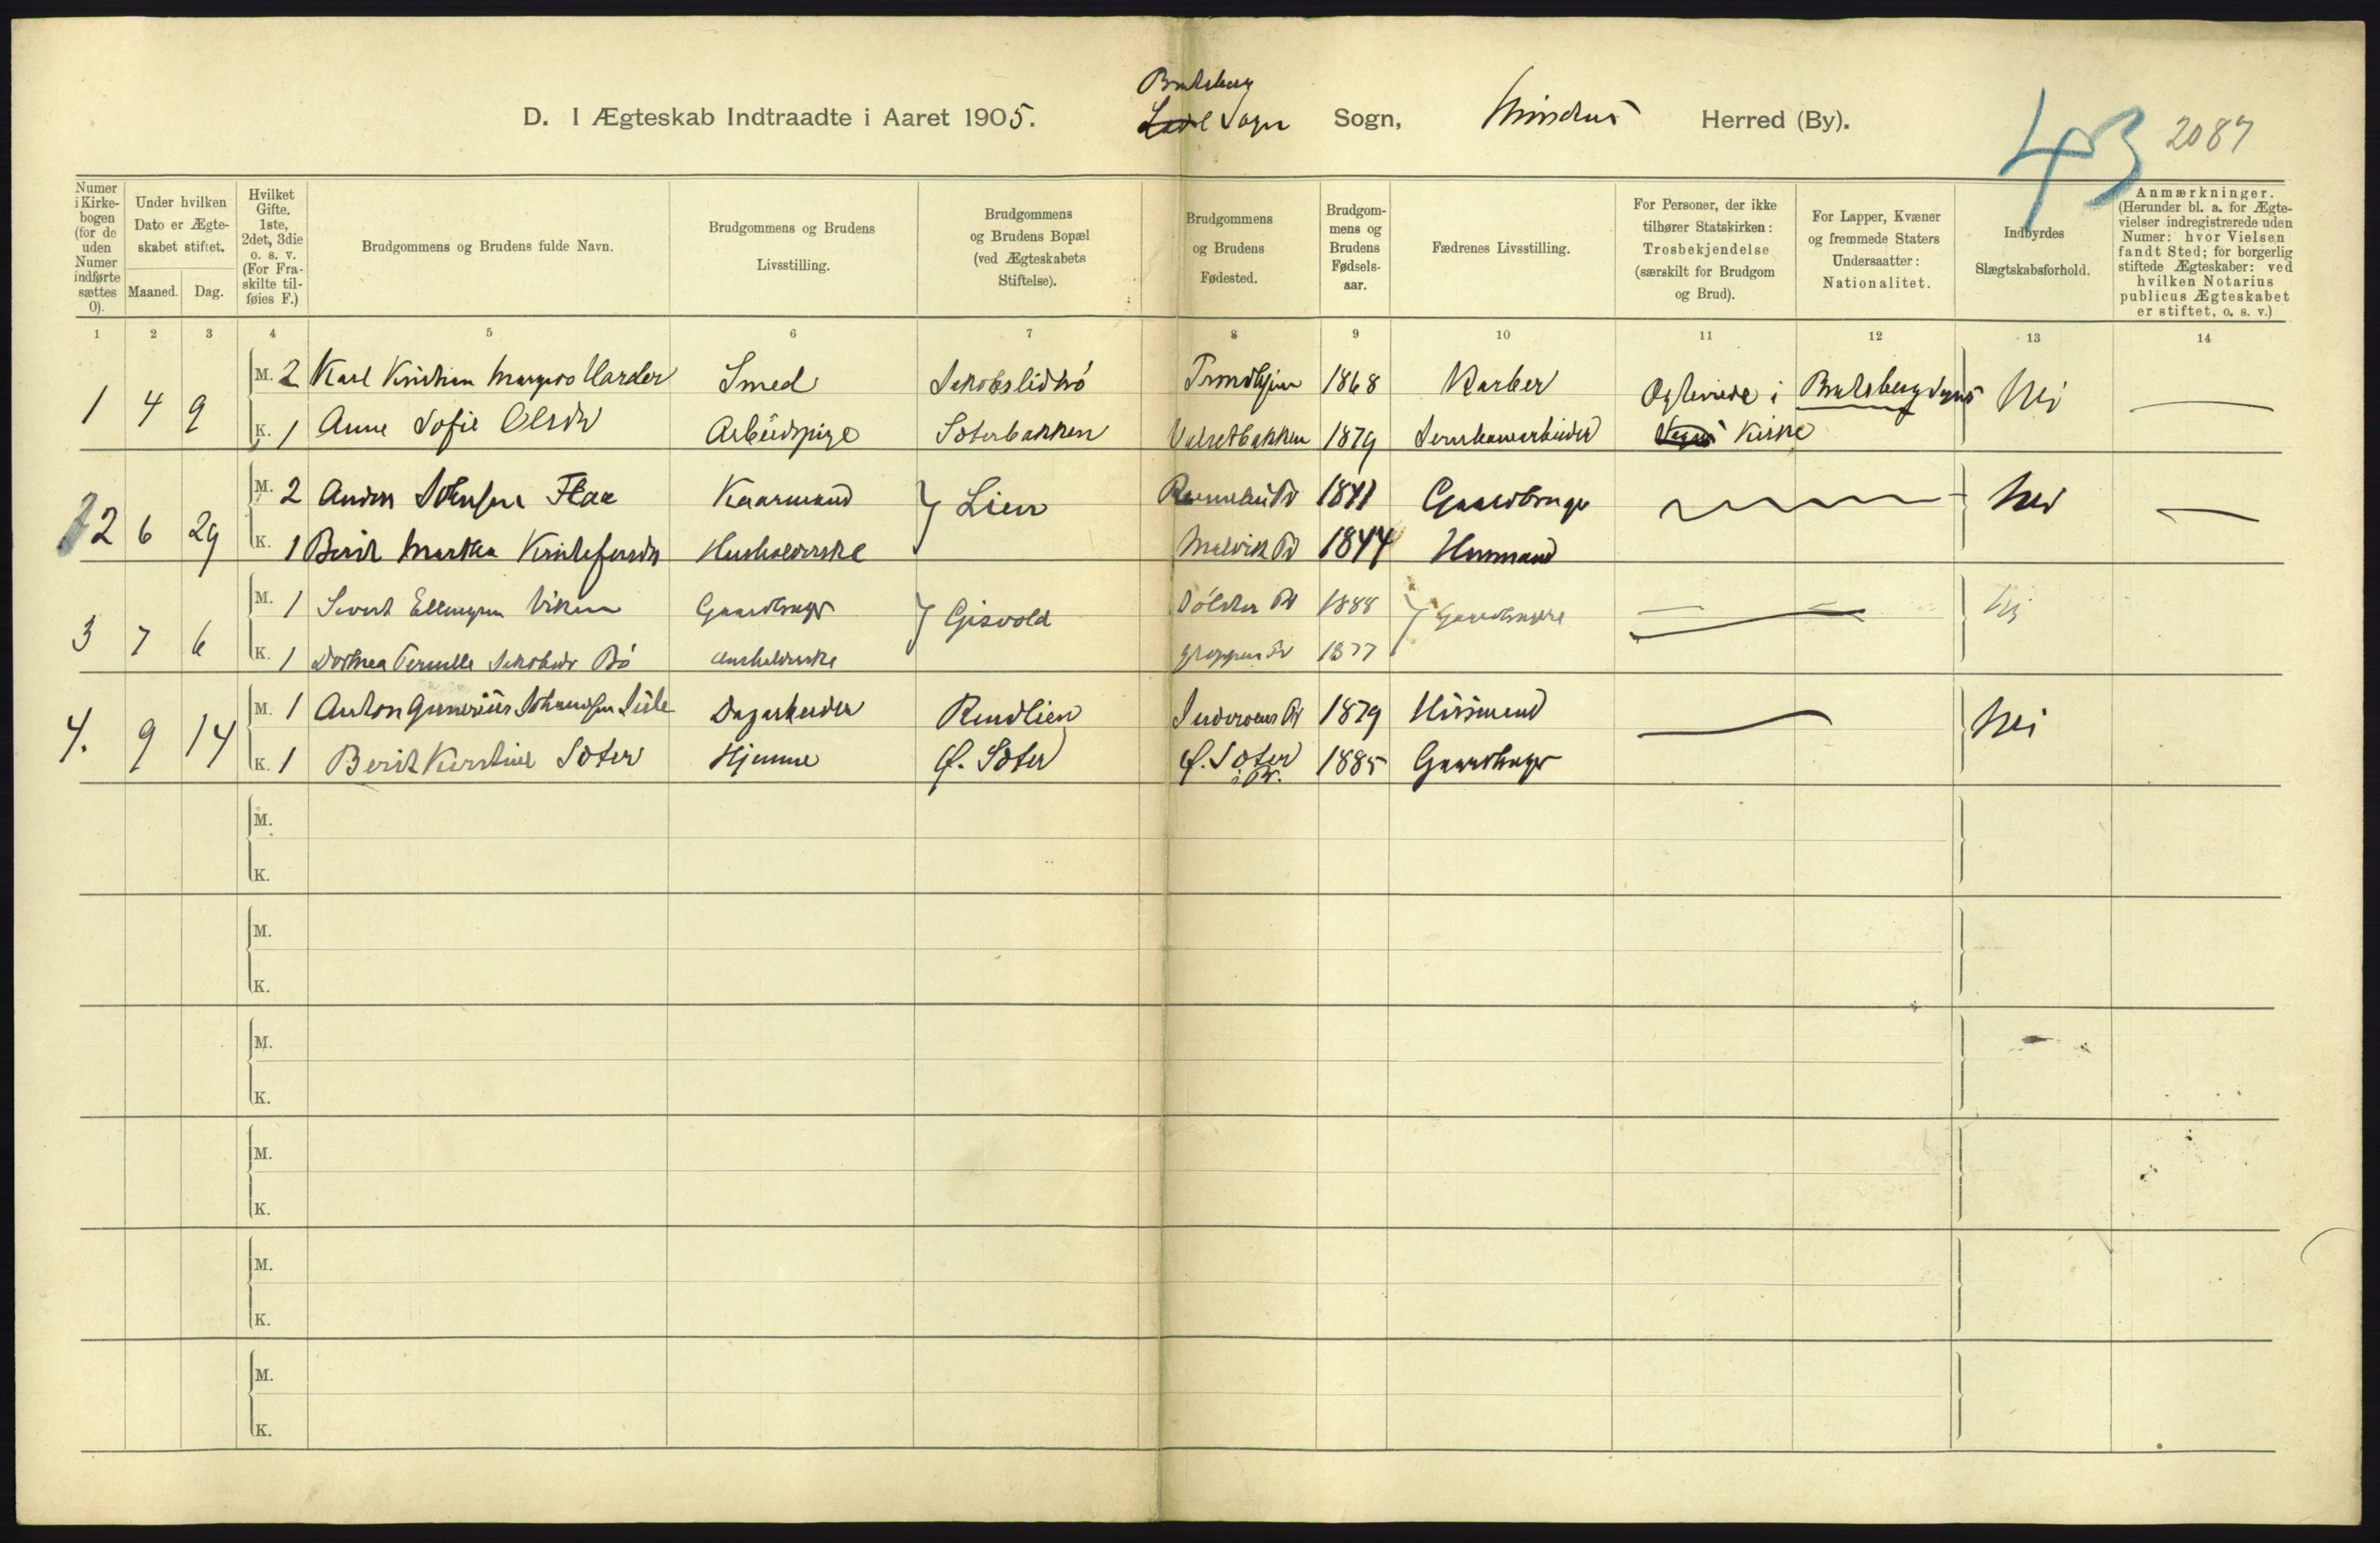 Bratsberg
D. I Ægteskab Indtraadte i Aaret 1905. Lade Sogn Sogn, Strinden Herred (By).
43 2087
Numer i Kirkebogen (for de uden Numer indførte sættes 0).
Under hvilken Dato er Ægteskabet stiftet.
Maaned. Dag.
Hvilket Gifte. 1ste, 2det, 3die o. s. v. (For Fraskilte tilføies F.)
Brudgommens og Brudens fulde Navn.
Brudgommens og Brudens Livsstilling.
Brudgommens og Brudens Bopæl (ved Ægteskabets Stiftelse).
Brudgommens og Brudens Fødested.
Brudgommens og Brudens Fødselsaar.
Fædrenes Livsstilling.
For Personer, der ikke tilhører Statskirken: Trosbekjendelse (særskilt for Brudgom og Brud).
For Lapper, Kvæner og fremmede Staters Undersaatter: Nationalitet.
Indbyrdes Slægtskabsforhold.
Anmærkninger. (Herunder bl. a. for Ægtevielser indregistrerede uden Numer: hvor Vielsen fandt Sted; for borgerlig stiftede Ægteskaber: ved hvilken Notarius publicus Ægteskabet er stiftet, o. s. v.)
1 2 3 4 5 6 7 8 9 10 11 12 13 14
1 4 9 M. 2 Karl Kristian Harder Smed Trondhjem 1868 Barber Bratsberg Sogns Nei
K. 1 Anne Sofie Olsdr Arbeidspige Sæterbakken 1879 Kirke
2 6 29 M. 2 Anders Johnsen Flaa Kaarmand Lien 1841 Gaardbruger Nei
K. 1 Berit Martha Kristofersdr Husholderske Malvik Pr 1844 Husmand
3 7 6 M. 1 Sivert Ellingsen Viken Gaardbruger Gisvold 1888 Gaardbrugere Nei
K. 1 Dorthea Pernille Jakobsdr Bö Husholderske 1877
4. 9 14 M. 1 Anton Johannesen Dagarbeider Rendlien Inderøens Pr 1879 Husmand Nei
K. 1 Berit Kirstine Sæter Hjemme Ø. Sæter Ø. Sæter 1885 Gaardbruger
i Pr.
M.
K.
M.
K.
M.
K.
M.
K.
M.
K.
M.
K.